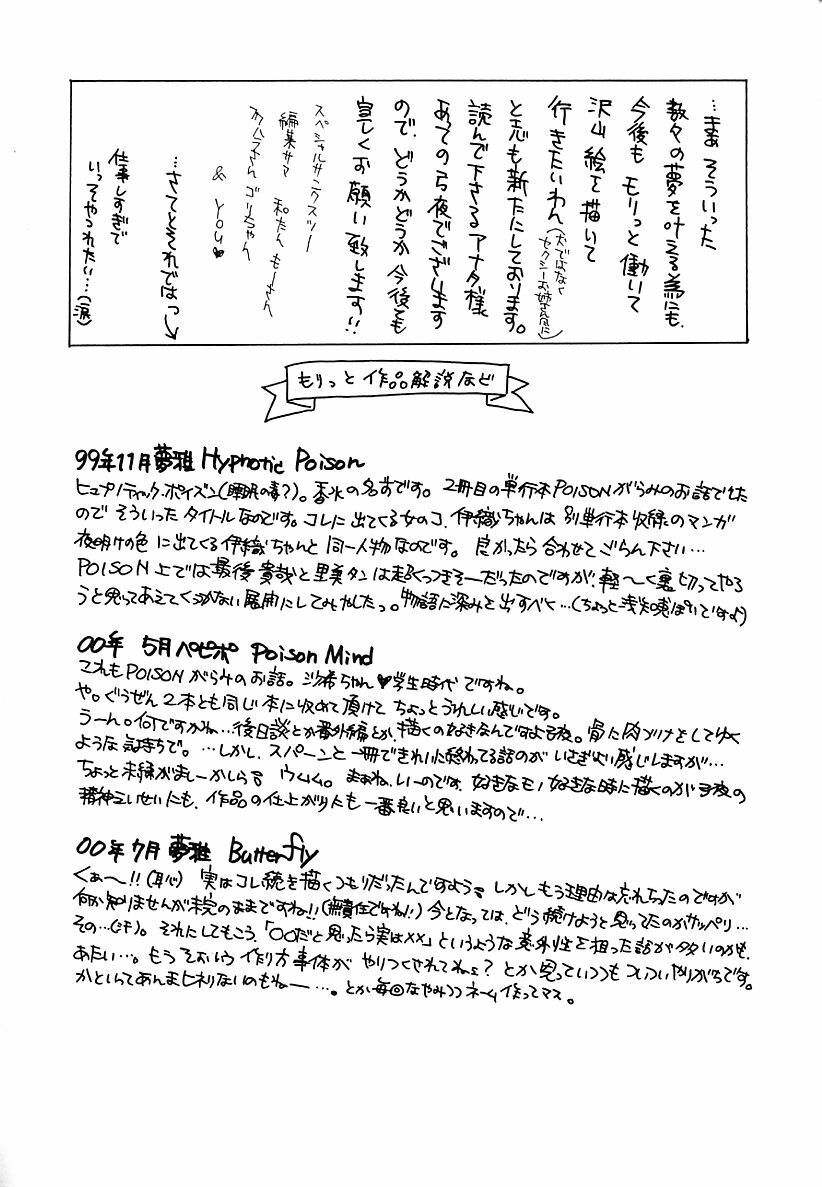 …まあ そういった
数々の夢を叶える為にも、
今後も モリっと働いて
沢山絵を描いて
行きたいわん(犬ではなく
セクシーお姉さん風に)
と志も新たにしております。
読んで下さるアナタ様
あての弓夜でございます
ので、どうかどうか今後とも
宜しくお願い致します!!
スペシャルサンクスツー
編集サマ 和たん もーさん
カムラさん ゴリちゃん
& YOU♥
…さてとそれではっ
仕事しすぎで
いってやつれたい…(涙)
もりっと作品解説など
99年11月夢雅 Hypnotic Poison
ヒュプノティック・ポイズン(睡眠の毒?)。香水の名前です。2冊目の単行本POISONがらみのお話でした
ので そういった タイトルなのです。コレに出てくる女のコ、伊織ちゃんは 別単行本収録のマンガ
夜明けの色 に出てくる伊織ちゃんと 同一人物なのです。良かったら 合わせて ごらん下さい…
POISON 上では最後 貴哉と里美タンは超くっつきそーだったのですが、軽〜く裏切ってやろ
うと思ってあえてくっつかない展開にしてみやしたっ。物語に深みを出すべく…(ちょっと浅知恵ぽいですよ)
00年 5月ペピポ Poison Mind
これもPOISONがらみのお話。沙希ちゃん♥学生時代 ですね。
や。ぐうぜん2本とも同じ本に収めて頂けて ちょっとうれしい感じです。
うーん。何ですかね…後日談とか番外編とか、描くの好きなんですよ弓夜。骨に肉づけをしてゆく
ような 気持ちで。…しかし、スパーンと一冊できれいに終わってる話のが いさぎよい感じしますが…
ちょっと未練がましーかしら? ウムム。まぁね、いーのです、好きなモノ好きな時に描くのが弓夜の
精神えいせいにも、作品の仕上がりにも一番良いと思いますので…
00年7月 夢雅 Butterfly
くぁ〜!!(恥心) 実はコレ続きを描くつもりだったんですよう? しかしもう理由は忘れちったのですが
何か知りませんが未完のままですね!!(無責任ですね!!)今となっては、どう続けようと思ってたのかサッパリ…
その…(汗)。それにしてもこう、「○○だと思ったら実は××」というような意外性を狙った話が多いのかも、
あたい…。もう そおいう 作り方事体が やりつくされてねぇ? とか思っていつつも ついついやりがちです。
かといってあんまヒネリないのもねー…。とか毎回なやみつつ ネーム作ってマス。